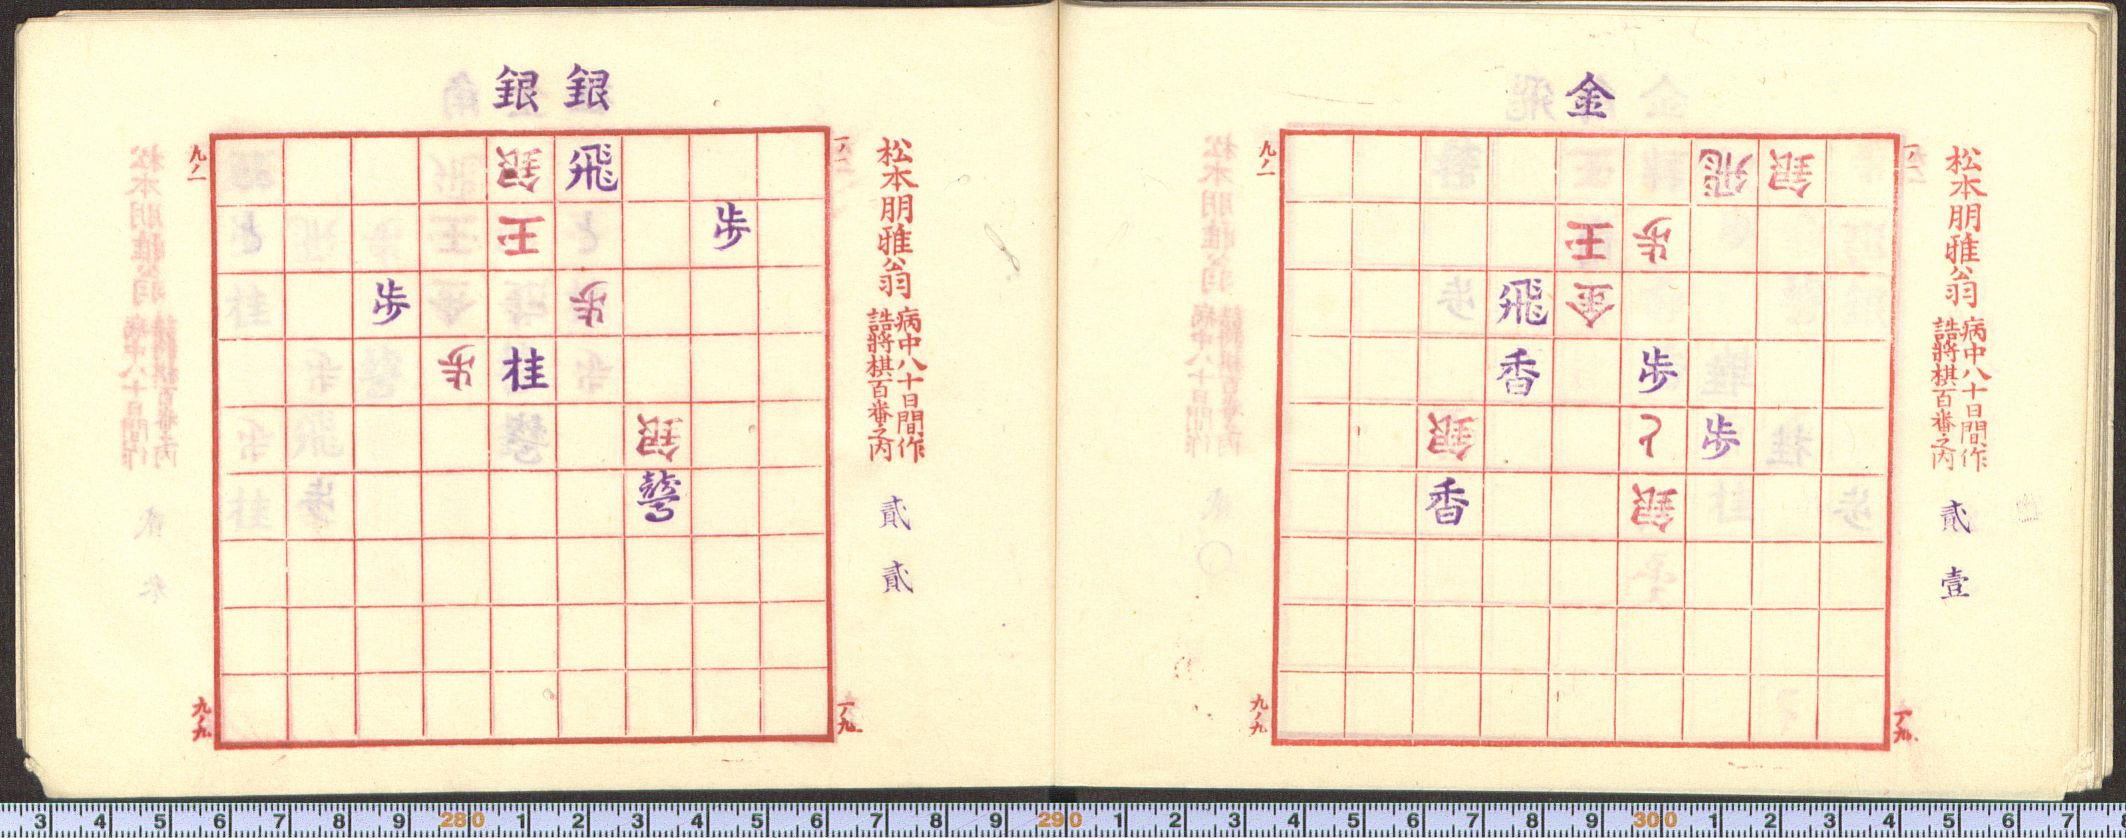 松本朋雅翁
病中八十日間作
詰將棋百番之內
貳壹
金
九ノ一
一ノ一
飛銀
王歩
飛金
香歩
銀と歩
香銀
九ノ九
一ノ九
松本朋雅翁
病中八十日間作
詰將棋百番之內
貳貳
銀銀
九ノ一
一ノ一
銀飛
王歩
歩歩
歩桂
銀
九ノ九
一ノ九
3 4 5 6 7 8 9 280 1 2 3 4 5 6 7 8 9 290 1 2 3 4 5 6 7 8 9 300 1 2 3 4 5 6 7